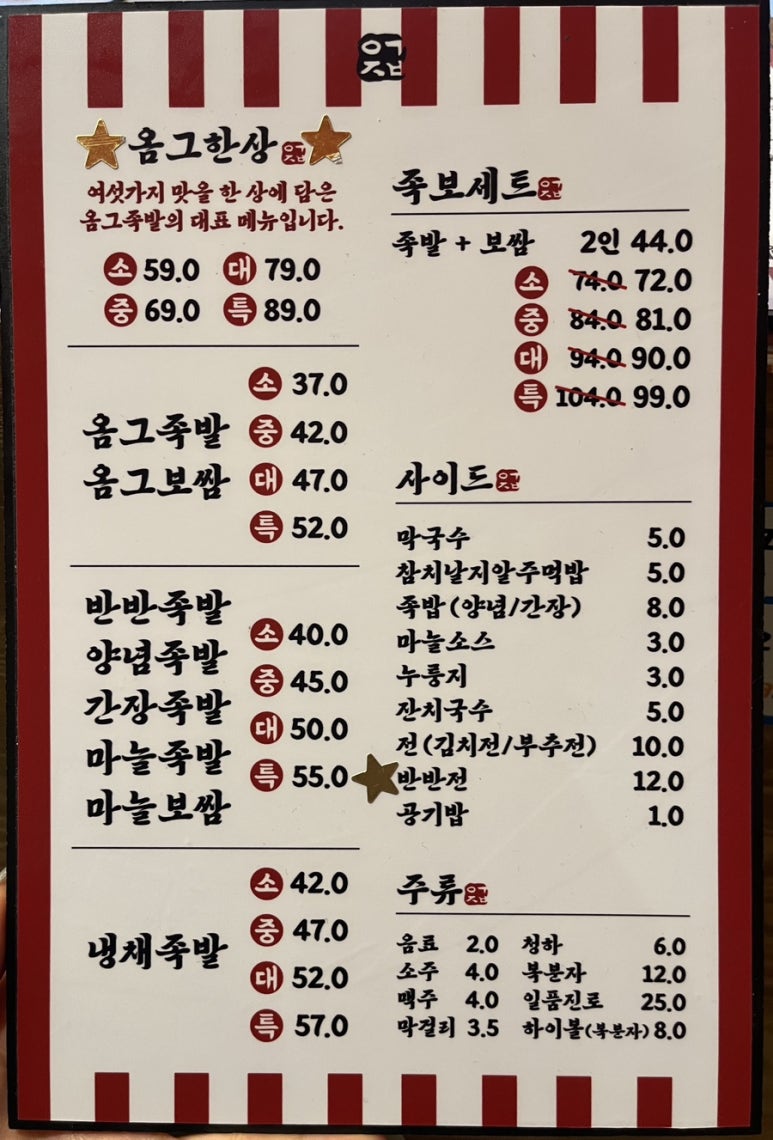 옴그족발
옴그한상
여섯가지 맛을 한 상에 담은
옴그족발의 대표 메뉴입니다.
소 59.0 대 79.0
중 69.0 특 89.0
옴그족발
옴그보쌈
소 37.0
중 42.0
대 47.0
특 52.0
반반족발
양념족발
간장족발
마늘족발
마늘보쌈
소 40.0
중 45.0
대 50.0
특 55.0
냉채족발
소 42.0
중 47.0
대 52.0
특 57.0
족보세트
족발 + 보쌈 2인 44.0
소 74.0 72.0
중 84.0 81.0
대 94.0 90.0
특 104.0 99.0
사이드
막국수 5.0
참치날치알주먹밥 5.0
족밥(양념/간장) 8.0
마늘소스 3.0
누룽지 3.0
잔치국수 5.0
전(김치전/부추전) 10.0
반반전 12.0
공기밥 1.0
주류
음료 2.0 청하 6.0
소주 4.0 복분자 12.0
맥주 4.0 일품진로 25.0
막걸리 3.5 하이볼(복분자) 8.0